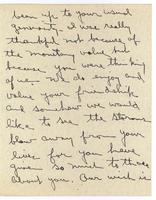 been up to your usual
generosity. I was really
thankful not because of
the monetary value but
because you were thinking
of us. We do enjoy and
value your friendship
and somehow we would
like to see the storms
blow away from your
lives for you have
given so much to those
about you. Our wish is